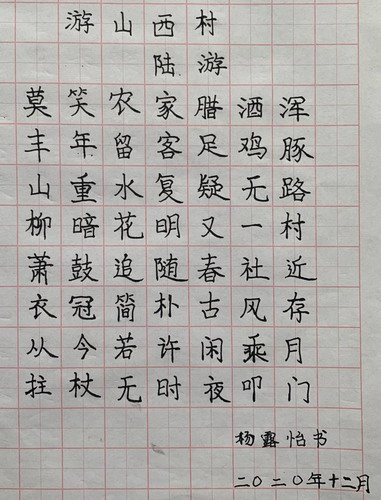 游山西村
陆游
莫笑农家腊酒浑
丰年留客足鸡豚
山重水复疑无路
柳暗花明又一村
萧鼓追随春社近
衣冠简朴古风存
从今若许闲乘月
拄杖无时夜叩门
杨露怡书
二〇二〇年十二月